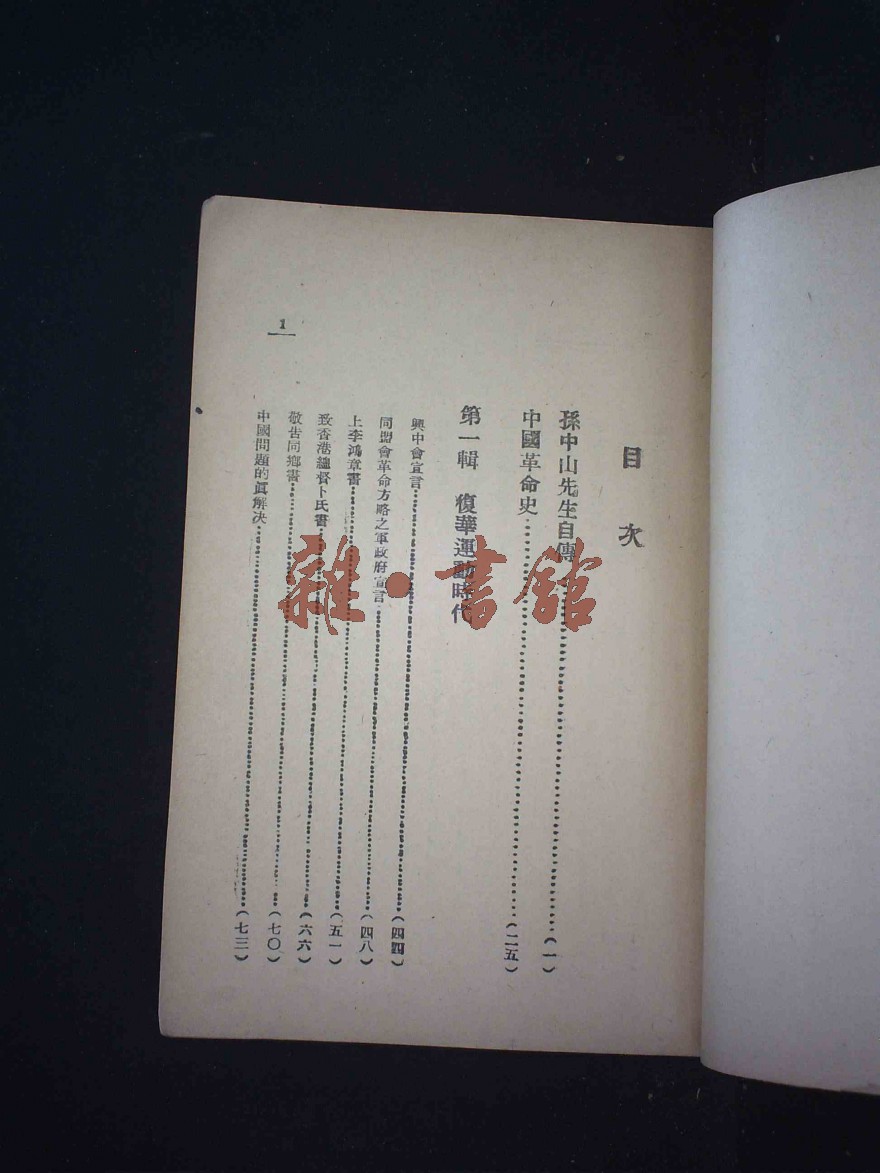 目次
孫中山先生自傳……(一)
中國革命史……(二五)
第一輯 復華運動時代
興中會宣言……(四四)
同盟會革命方略之軍政府宣言……(四八)
上李鴻章書……(五一)
致香港總督卜氏書……(六六)
敬告同鄉書……(七〇)
中國問題的眞解决……(七三)
1
雜·書館